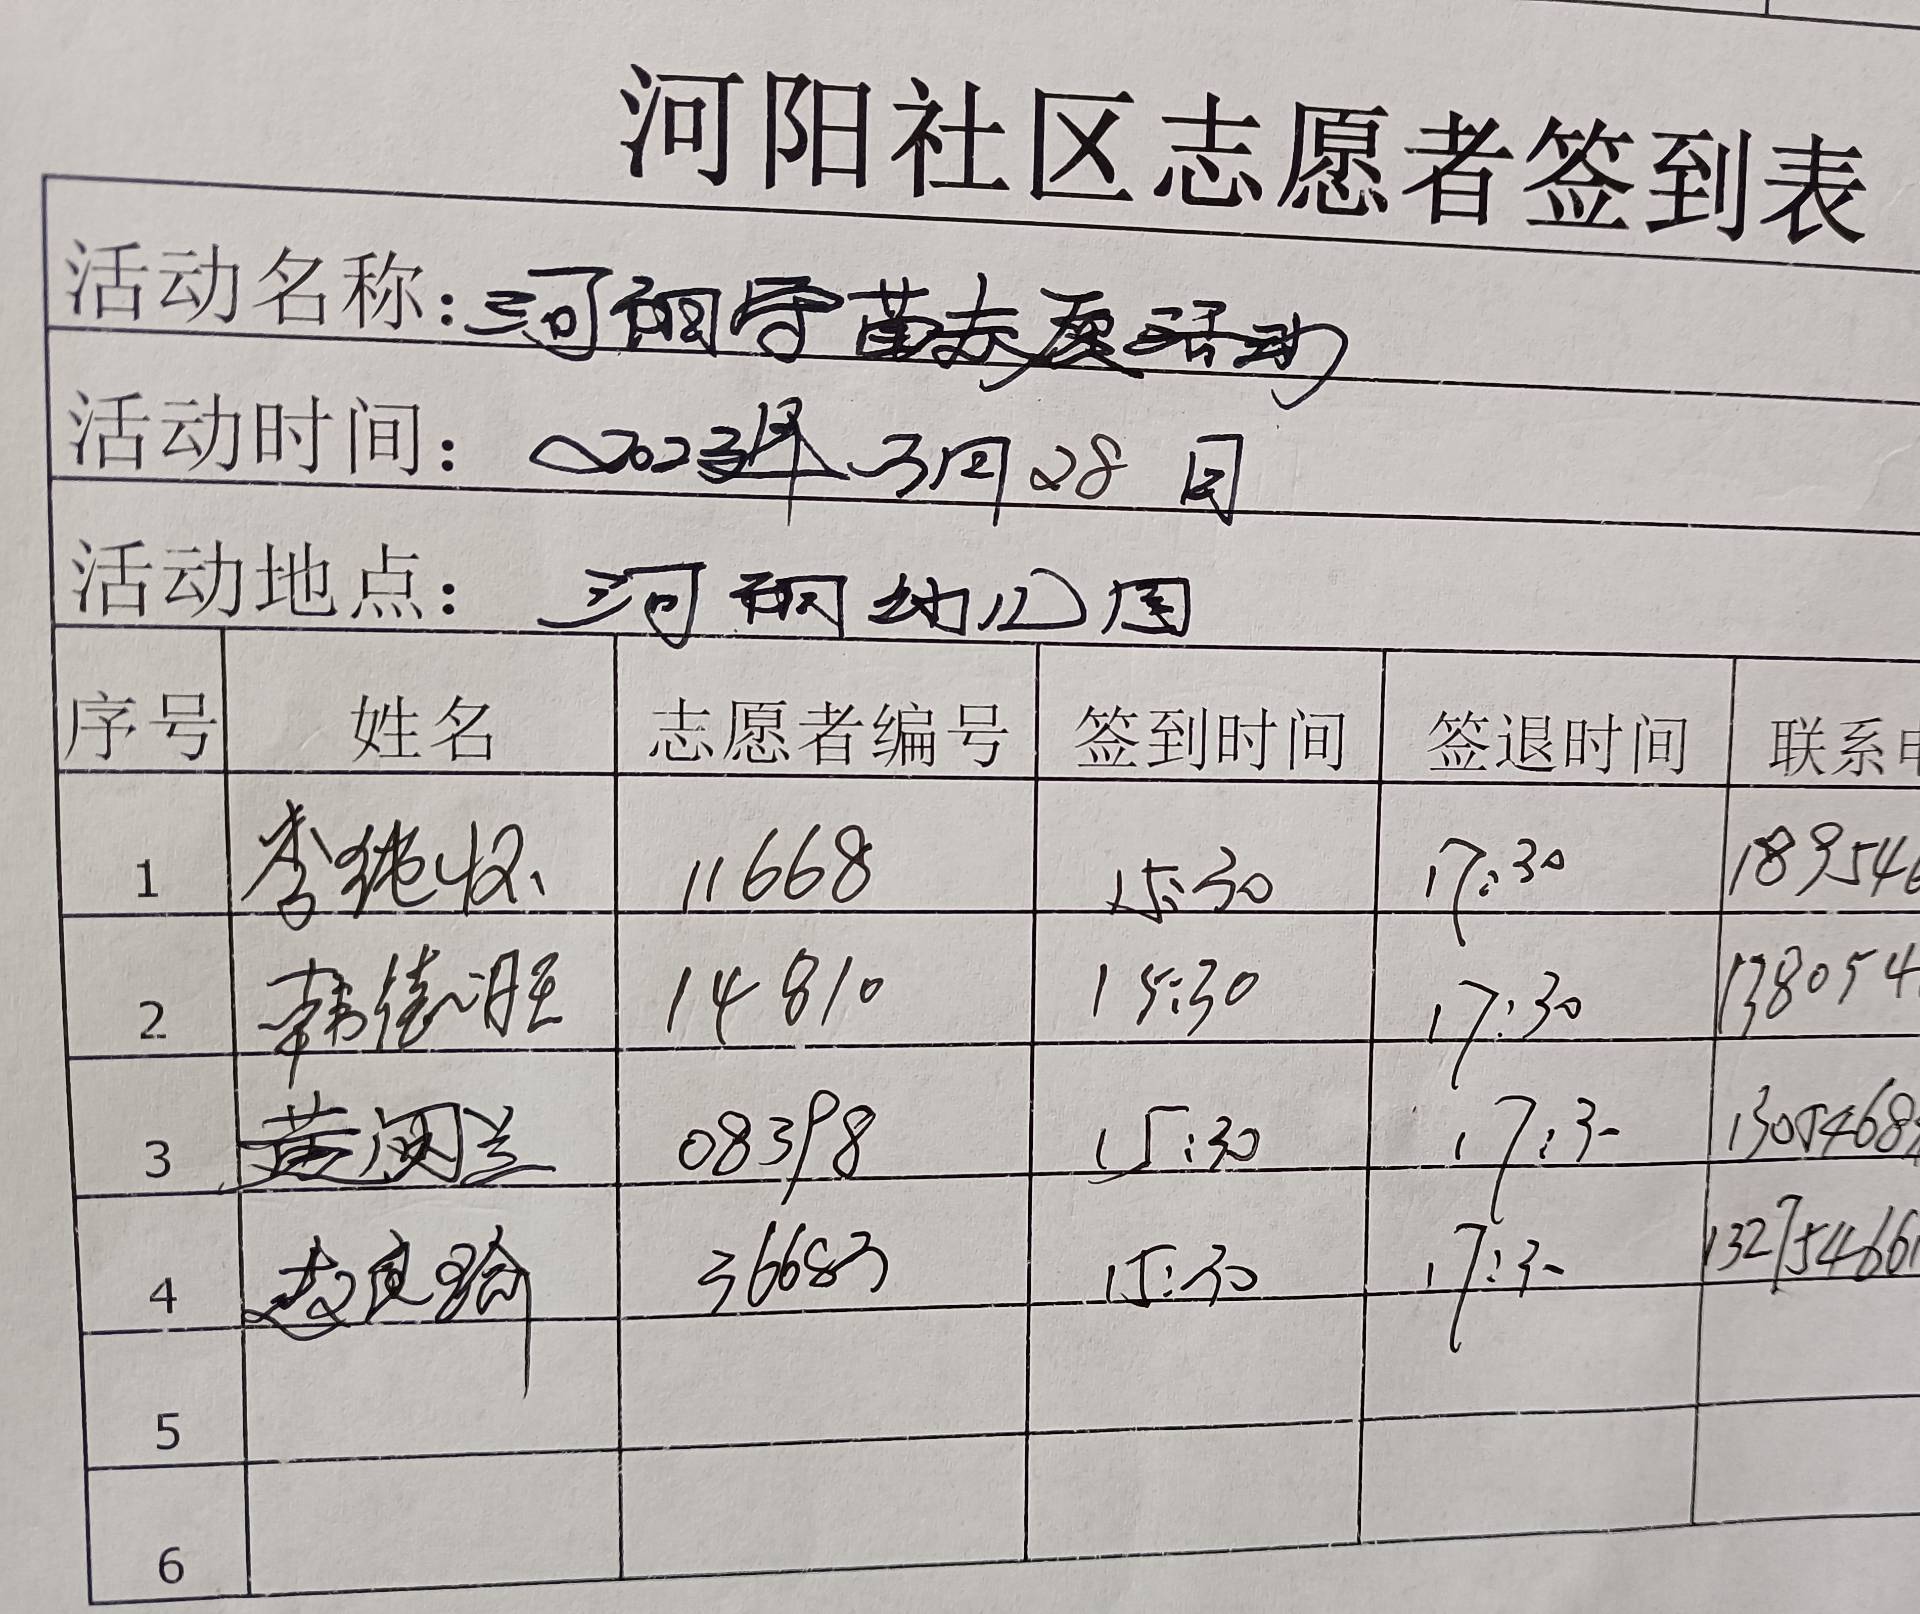 河阳社区志愿者签到表
活动名称:河阳守苗志愿活动
活动时间: 2023年3月28日
活动地点: 河阳幼儿园
序号 姓名 志愿者编号 签到时间 签退时间 联系
1 李 11668 15:30 17:30 189546
2 韩德旺 14810 15:30 17:30 138054
3 黄闵兰 08398 15:30 17:30 1305468
4 赵良 36683 15:30 17:30 132754661
5
6